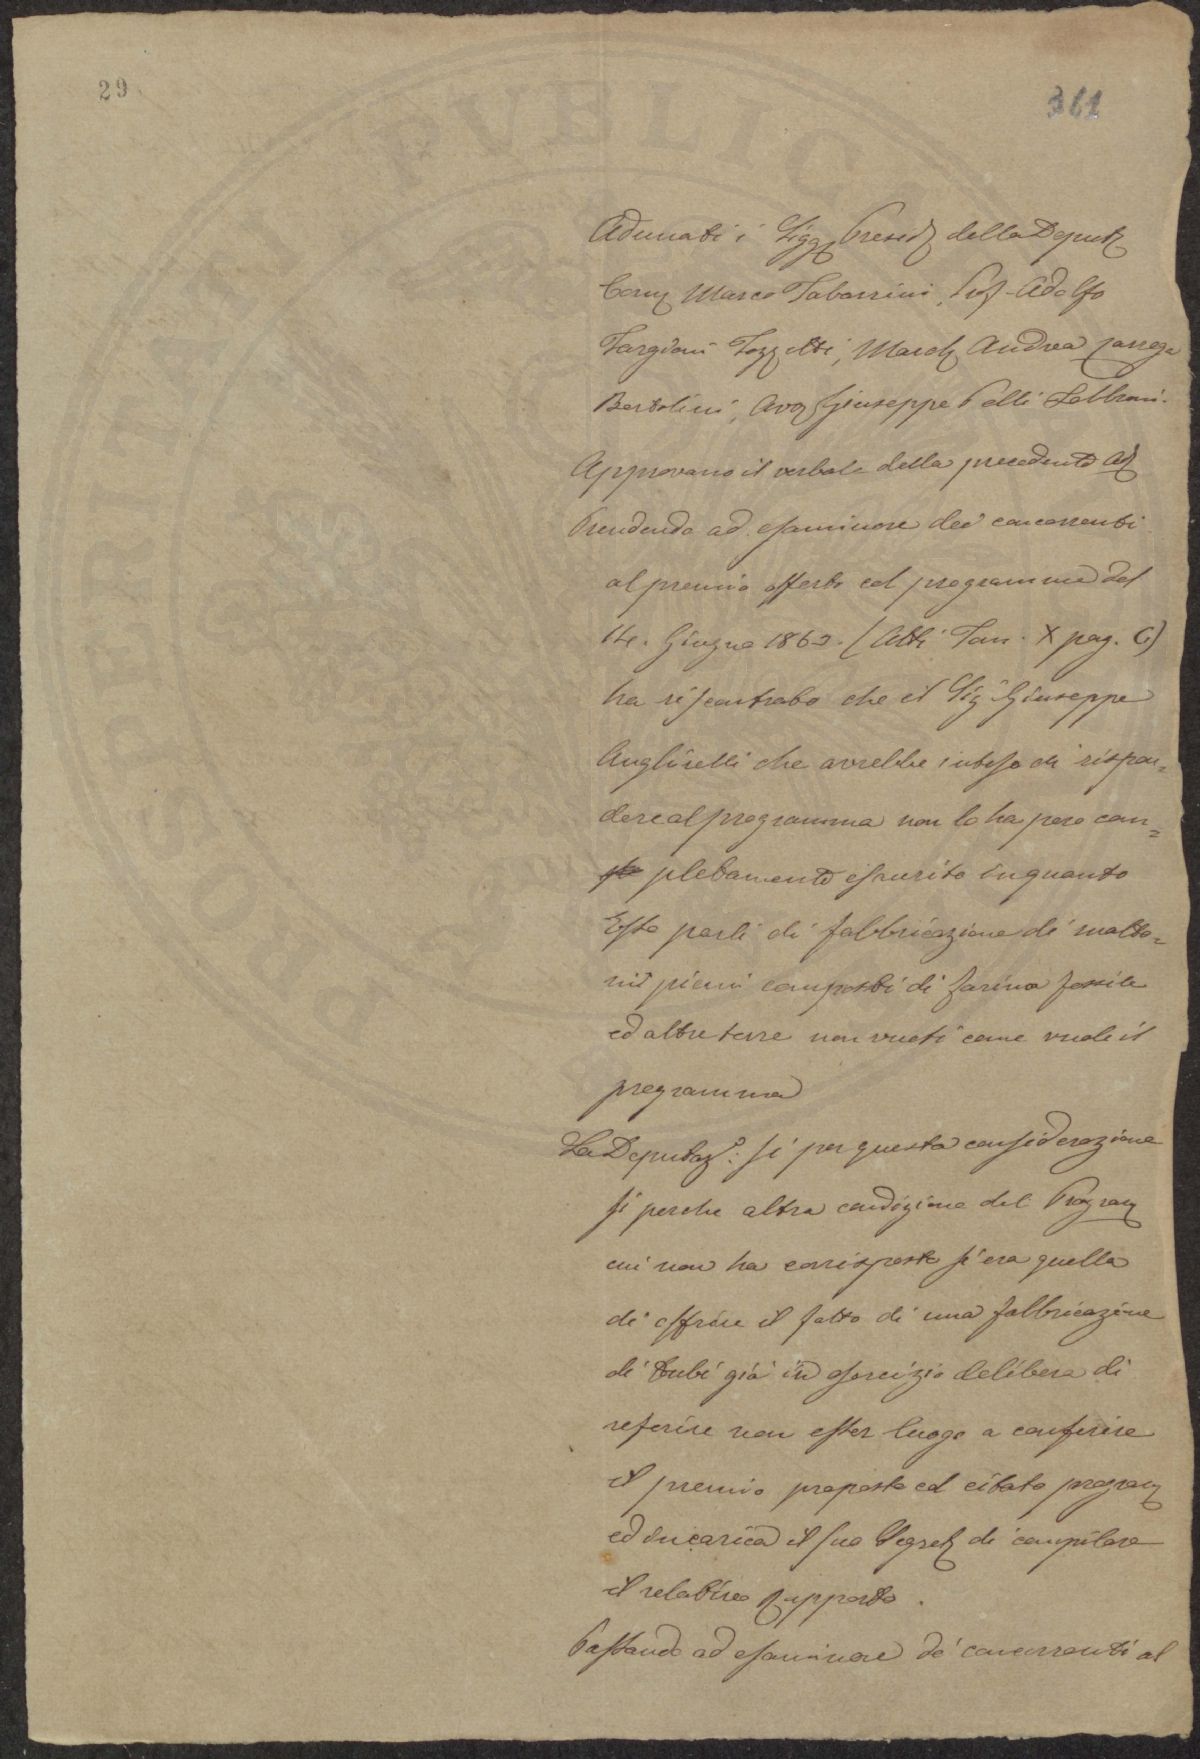 29
361
Adunati i Sigg Presid della Deput
Com Marco Tabarrini, Prof Adolfo
Targioni Tozzetti, March Andrea
Bertolini, Avv Giuseppe Pelli Fabbroni.
Approvano il verbale della precedente Ad
Prendendo ad esaminare dei concorrenti
al premio offerto col programma del
14. Giugno 1862. (Atti Tom. X pag. C)
ha riscontrato che il Sig Giuseppe
che avrebbe inteso di rispon=
dere al programma non lo ha pero com=
pletamente esaurito inquanto
Esso parli di fabbricazione di matto=
ni pieni composti di farina fossile
ed altre terre non vuoti come vuole il
programma
La Deputaz.e: si per questa considerazione
si perche altra condizione del Program
cui non ha corrisposto si era quella
di offrire il fatto di una fabbricazione
di tubi già in esercizio delibera di
referire non esser luogo a conferire
il premio proposto col citato program
ed incarica il suo Segret di compilare
il relativo rapporto.
Passando ad esaminare de' concorrenti al